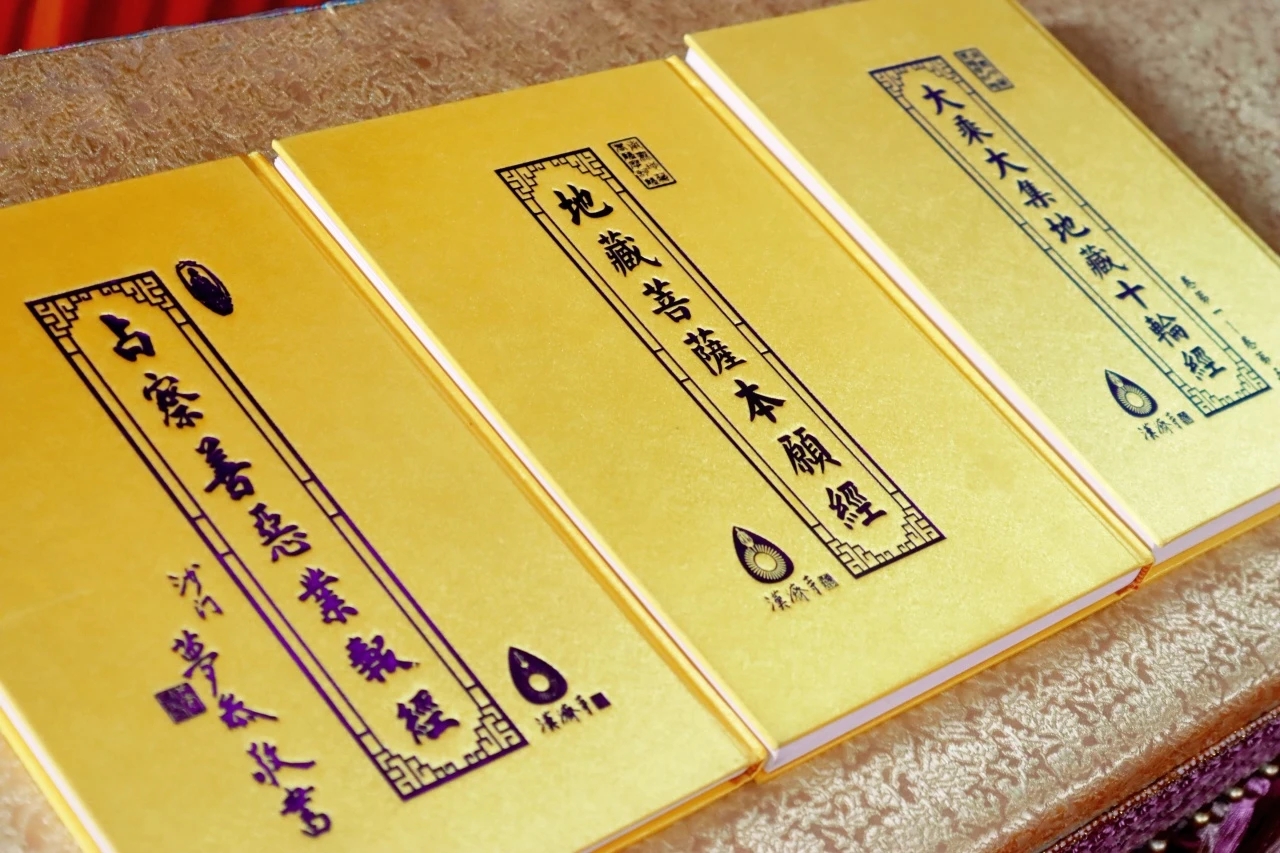 占察善惡業報經
沙门
夢参敬書
地藏菩薩本願經
大乘大集地藏十輪經
卷第一
卷第